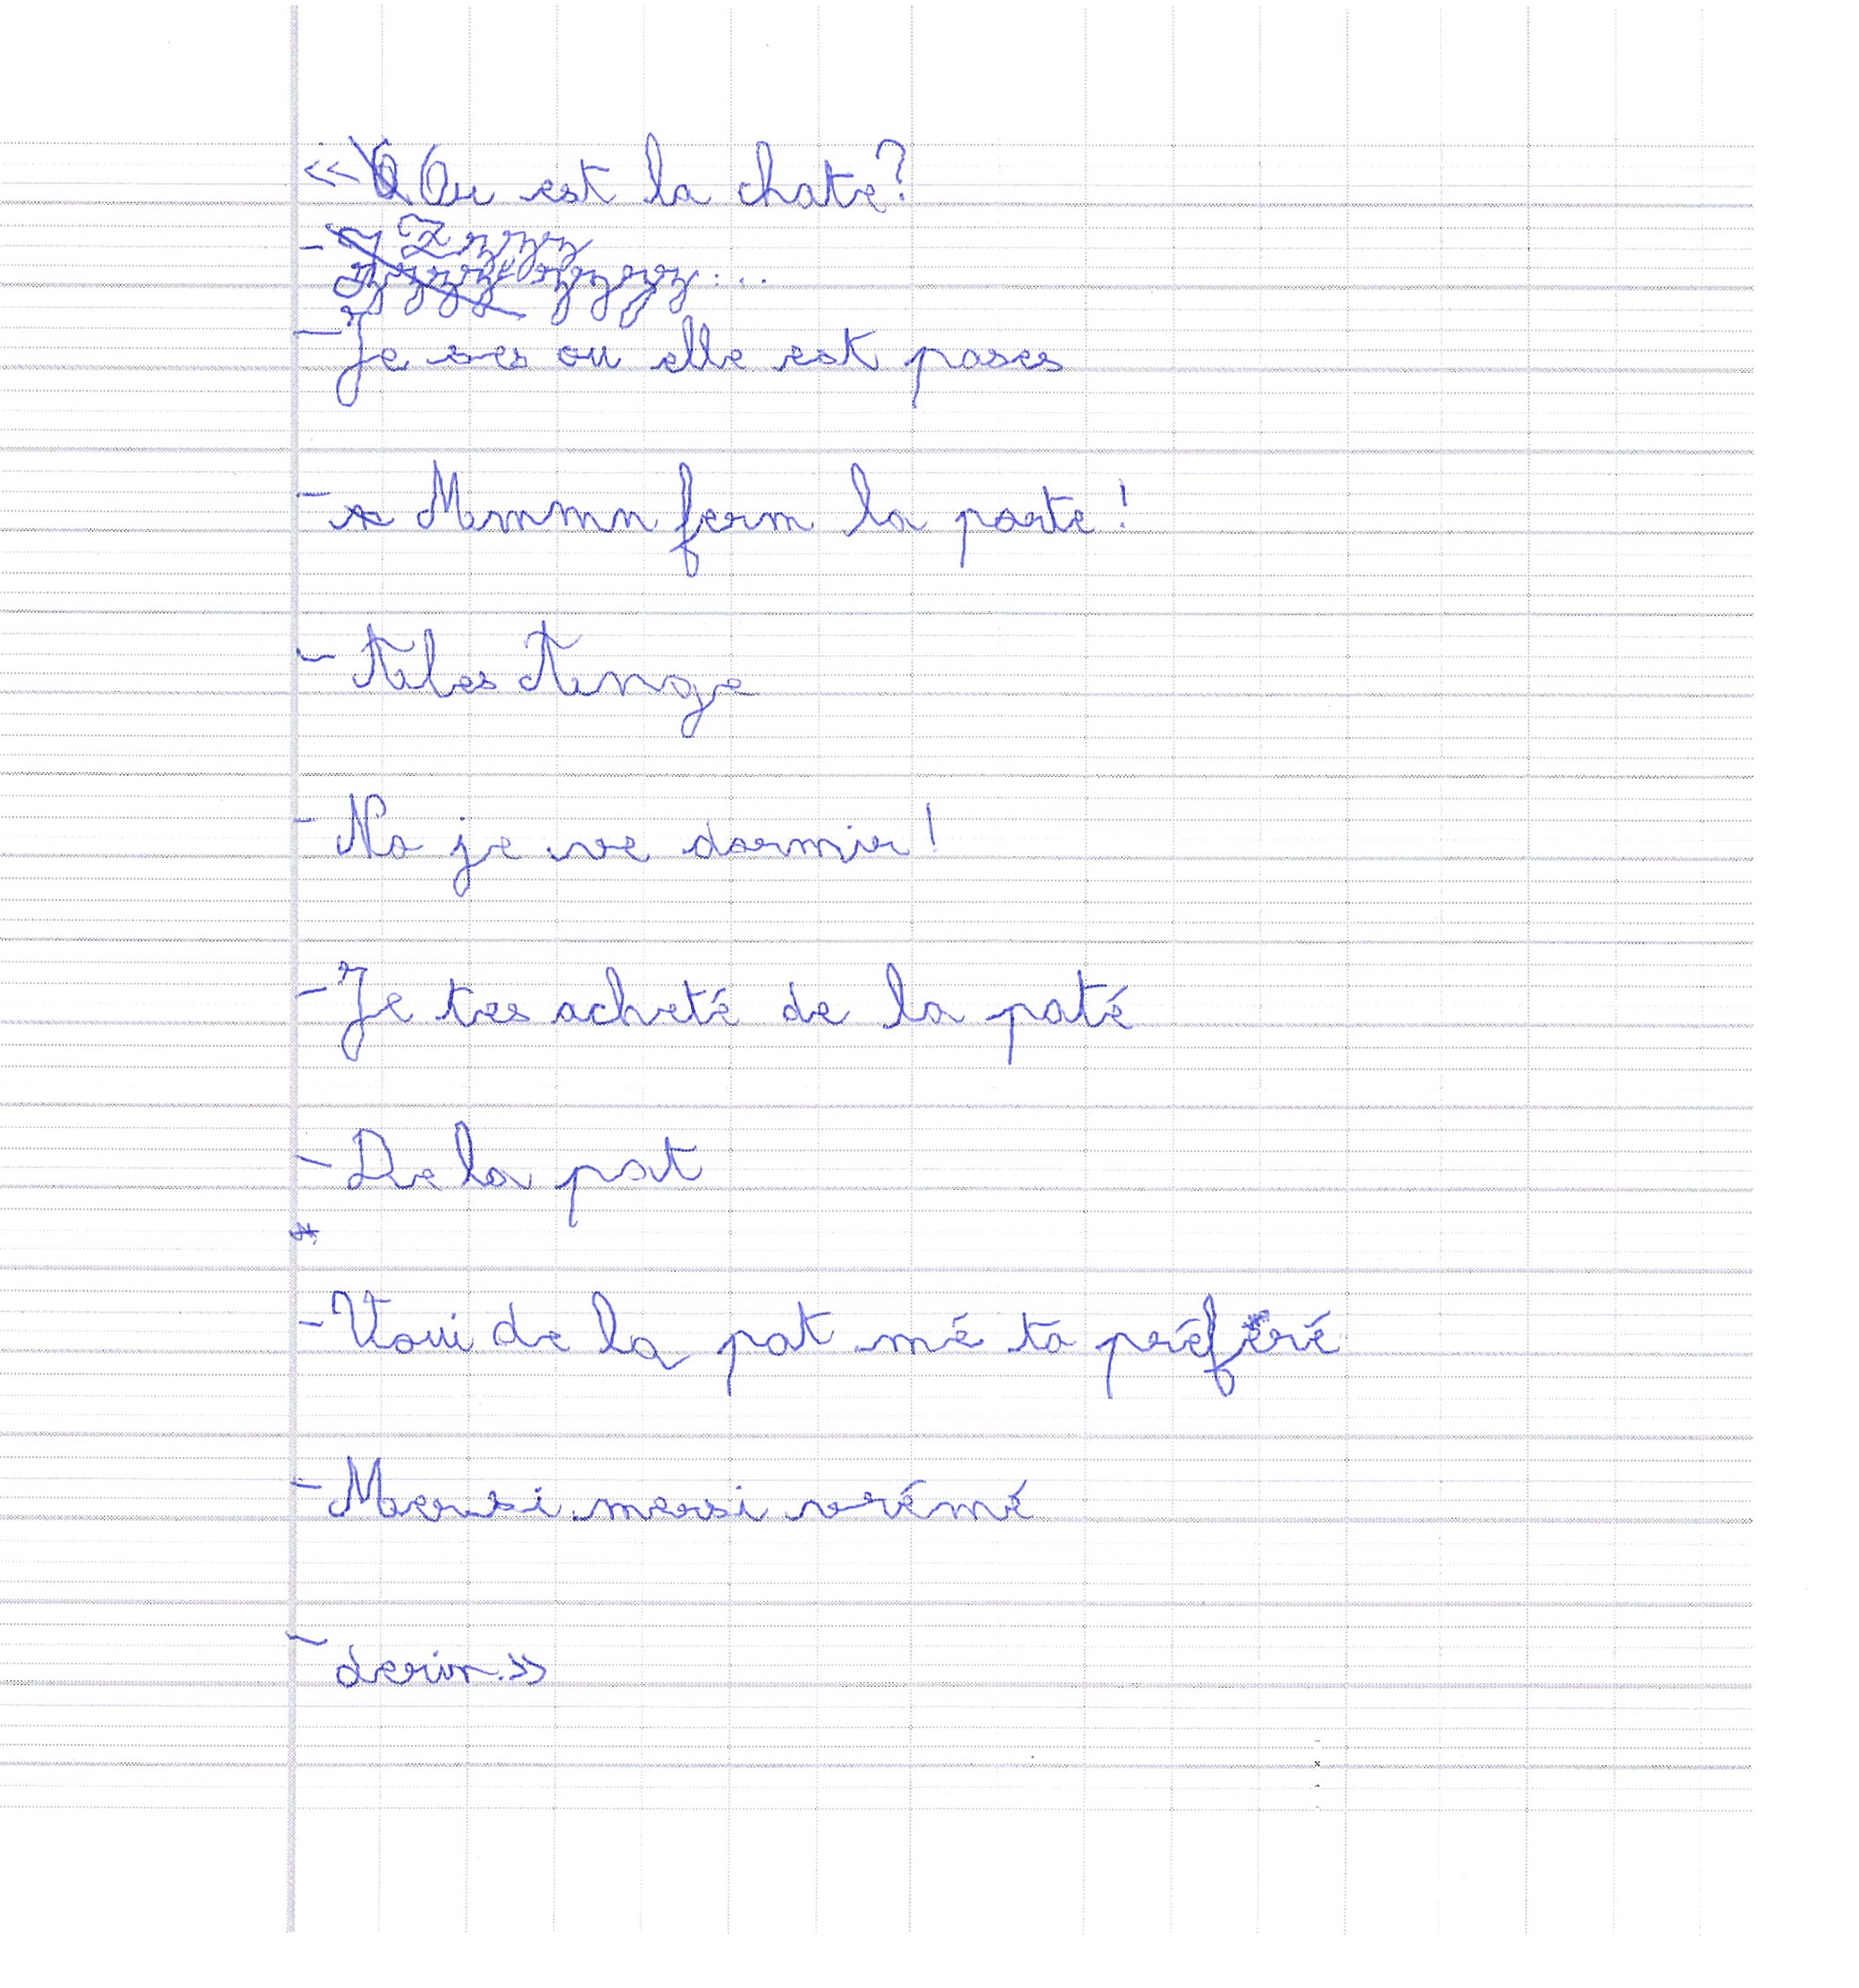 « Ou est la chate?
- Zzzzz
zzzz...
- Je ses ou elle est pases
- Mmmmn ferm la porte!
- Ales
- No je ve dormir!
- Je tes acheté de la paté
- De la pat
- Voui de la pat mé ta préféré
- Mersi mersi vrémé
- derien.»